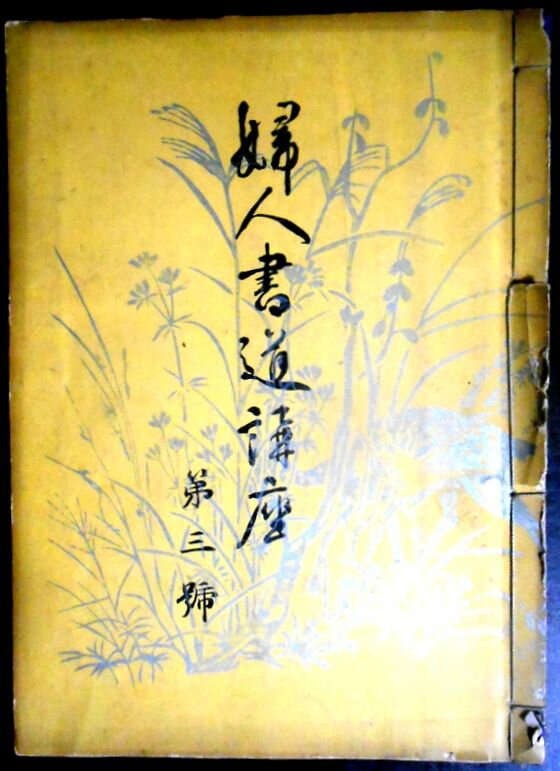 婦人書道講座
第三號